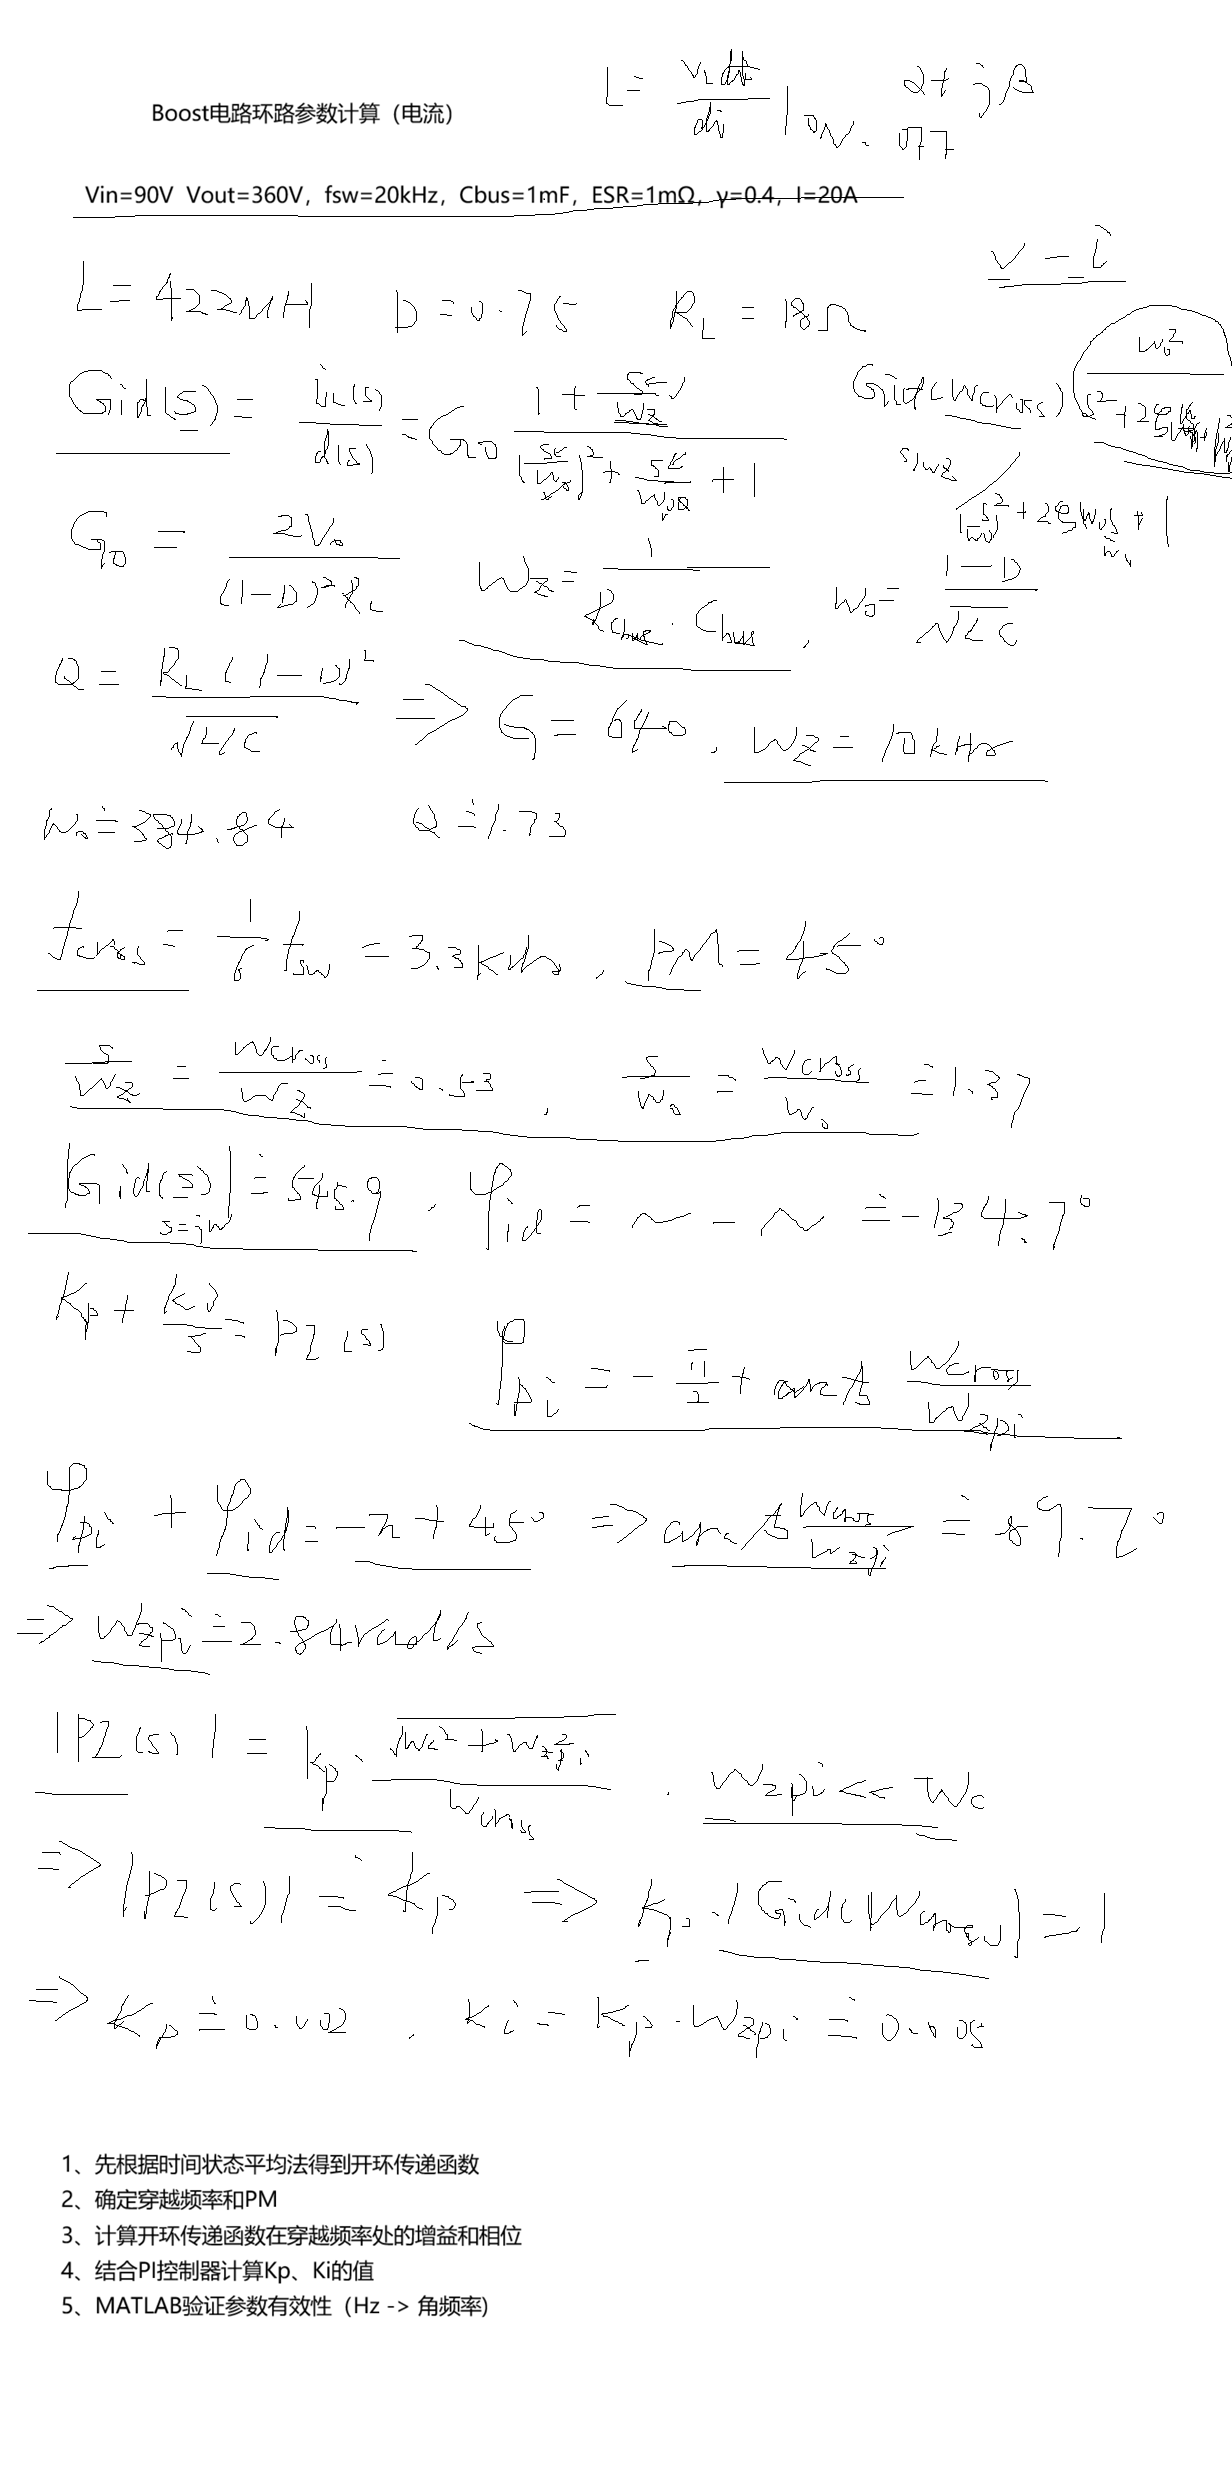 L = vL dt / di | ON. OFF   α + jβ
Boost电路环路参数计算（电流）
Vin=90V  Vout=360V，fsw=20kHz，Cbus=1mF，ESR=1mΩ，γ=0.4，I=20A
v - i
L = 422μH   D = 0.75   RL = 18Ω
Gid(s) = iL(s) / d(s) = G0
Gid(wcross)
G0 = 2V0 / (1-D)²RL   wz = 1 / Rcbus · Cbus ，w0 = 1-D / √LC
Q = RL(1-D)² / √L/C => G = 640 . wz = 10kHz
w0 ≐ 384.84   Q ≐ 1.73
fcross = 1/6 fsw = 3.3kHz , PM = 45°
s/wz = wcross/wz ≐ 0.53 , s/w0 = wcross/w0 ≐ 1.37
|Gid(s)| s=jw ≐ 545.9 , φid = ~ - ~ ≐ -134.7°
Kp + Ki/s = PI(s)
φpi = - π/2 + arctg wcross/wzpi
φpi + φid = -π + 45° => arctg wcross/wzpi ≐ 89.7°
=> wzpi ≐ 2.84rad/s
|PI(s)| = kp · √wc² + wzpi² / wcross . wzpi << wc
=> |PI(s)| ≐ Kp => Kp · |Gid(wcross)| = 1
=> Kp ≐ 0.002 , Ki = Kp · wzpi ≐ 0.005
1、先根据时间状态平均法得到开环传递函数
2、确定穿越频率和PM
3、计算开环传递函数在穿越频率处的增益和相位
4、结合PI控制器计算Kp、Ki的值
5、MATLAB验证参数有效性（Hz -> 角频率)